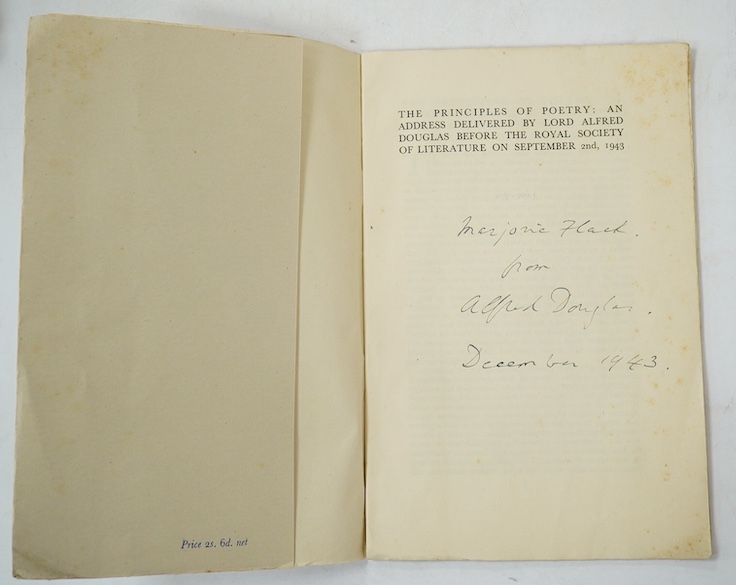 Price 2s. 6d. net
THE PRINCIPLES OF POETRY: AN
ADDRESS DELIVERED BY LORD ALFRED
DOUGLAS BEFORE THE ROYAL SOCIETY
OF LITERATURE ON SEPTEMBER 2nd, 1943
Marjorie Flack.
from
Alfred Douglas.
December 1943.